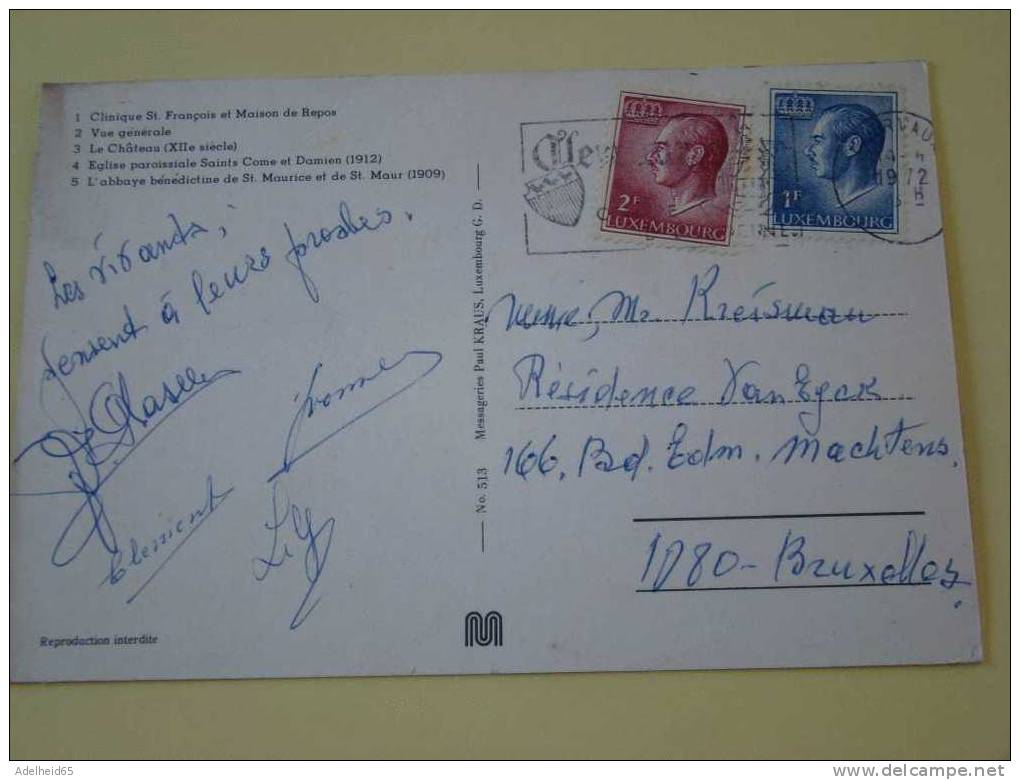 1 Clinique St. François et Maison de Repos
2 Vue générale
3 Le Château (XIIe siècle)
4 Eglise paroissiale Saints Come et Damien (1912)
5 L'abbaye bénédictine de St. Maurice et de St. Maur (1909)
Les vivants,
pensent à leurs proches.
Yvonne
Clement
Lily
Reproduction interdite
No. 513 Messageries Paul KRAUS, Luxembourg G. D.
2F
LUXEMBOURG
1F
LUXEMBOURG
1972
Mr. Kreisman
Résidence Van Eyck
166, Bd. Edm. Machtens.
1080-Bruxelles.
Adelheid65
delcampe.net